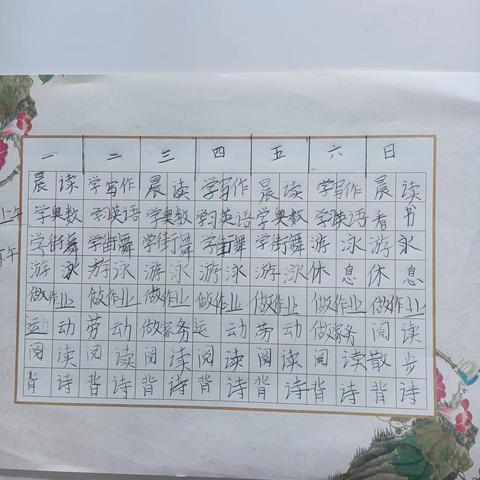 一 二 三 四 五 六 日
晨读 学写作 晨读 学写作 晨读 学写作 晨读
上午 学奥数 学习英语 学奥数 学习英语 学奥数 学习英语 看书
学街舞 学街舞 学街舞 学街舞 学街舞 游泳 游泳
下午 游泳 游泳 游泳 游泳 游泳 休息 休息
做作业 做作业 做作业 做作业 做作业 做作业 做作业
运动 劳动 做家务 运动 劳动 做家务 阅读
阅读 阅读 阅读 阅读 阅读 阅读 散步
背诗 背诗 背诗 背诗 背诗 背诗 背诗